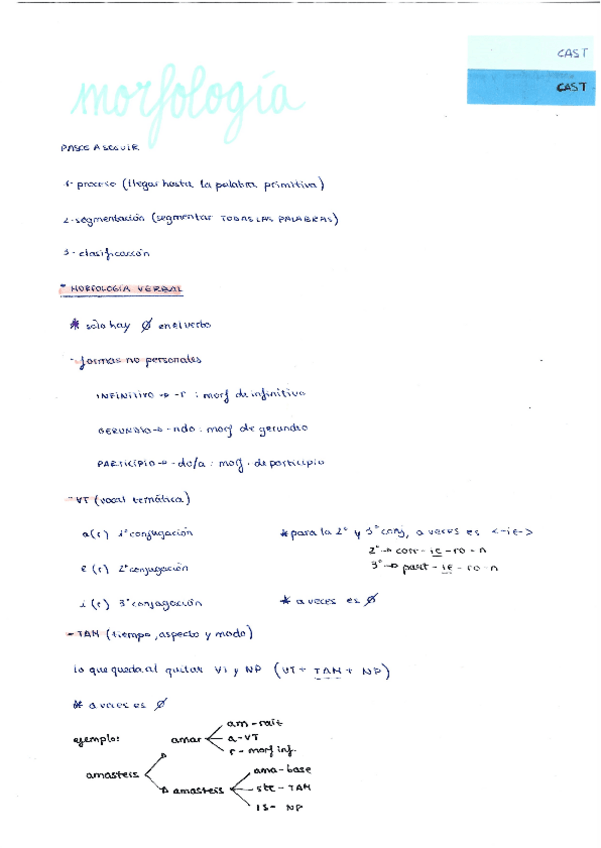 CAST
CAST
morfología
PASOS A SEGUIR
1- proceso (llegar hasta la palabra primitiva)
2- segmentación (segmentar TODAS LAS PALABRAS)
3- clasificación
MORFOLOGÍA VERBAL
* solo hay Ø en el verbo
- formas no personales
INFINITIVO → -r : morf de infinitivo
GERUNDIO → -ndo : morf de gerundio
PARTICIPIO → -do/a : morf. de participio
- VT (vocal temática)
a(r) 1ª conjugación
* para la 2ª y 3ª conj, a veces es <-ie->
2ª → corr - ie - ro - n
e(r) 2ª conjugación
3ª → part - ie - ro - n
i(r) 3ª conjugación
* a veces es Ø
- TAM (tiempo, aspecto y modo)
lo que queda al quitar VT y NP (VT + TAM + NP)
* a veces es Ø
ejemplo:
amar
am - raíz
a - VT
r - morf inf.
amasteis
amasteis
ama - base
ste - TAM
is - NP